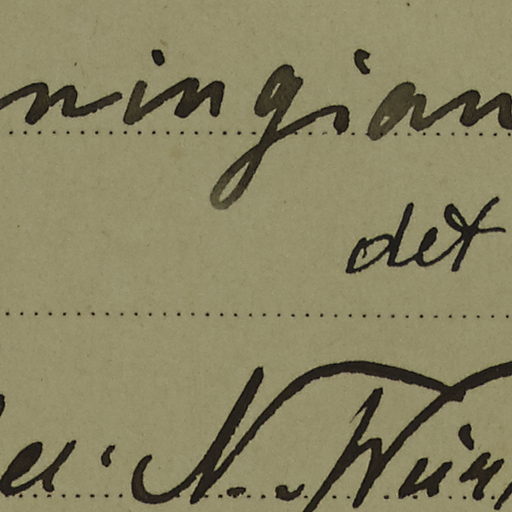 ningian
det
N. Wür